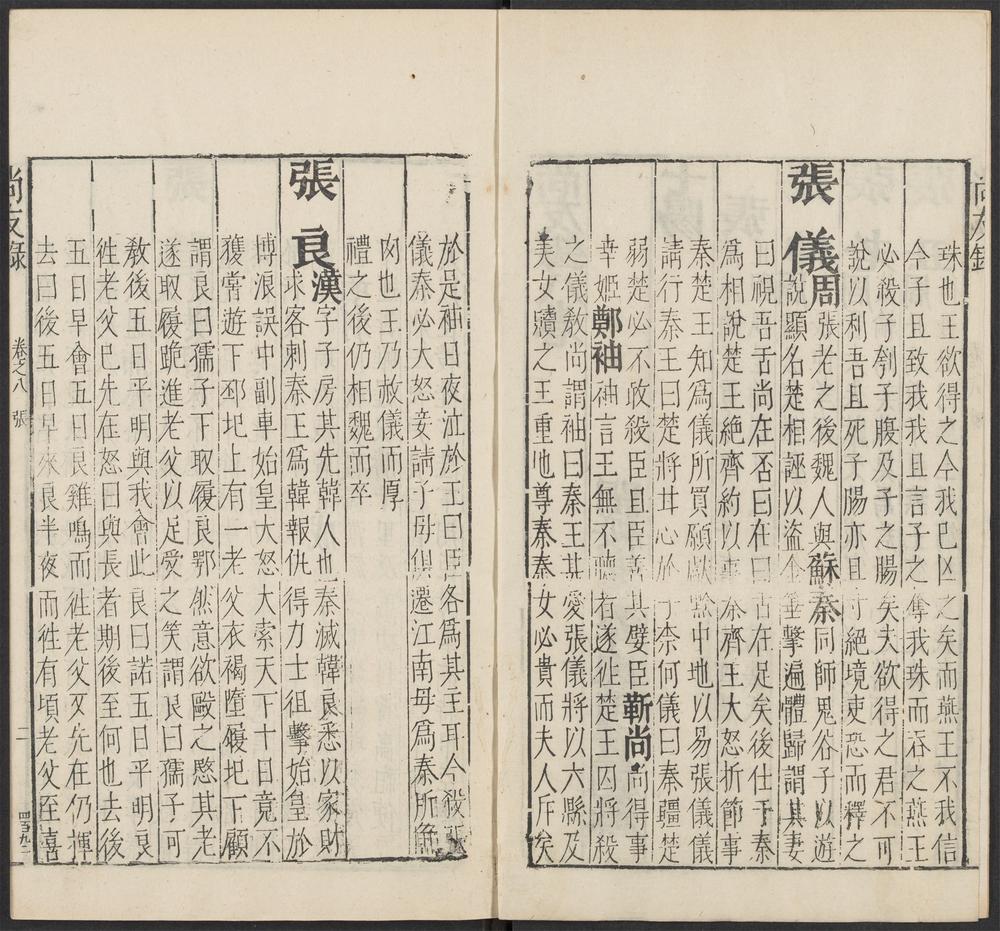 尚友錄
珠也王欲得之今我已亾之矣而燕王不我信
今子且致我我且言子之奪我珠而吞之燕王
必殺子刳子腹及子之腸矣夫欲得之君不可
說以利吾且死子腸亦且寸絕境吏恐而釋之
張儀周張老之後魏人與蘇秦同師鬼谷子以遊
說顯名楚相誣以盜金箠擊遍體歸謂其妻
曰視吾舌尚在否曰在曰舌在足矣後仕于秦
爲相說楚王絕齊約以事秦齊王大怒折節事
秦楚王知爲儀所買願獻黔中地以易張儀儀
請行秦王曰楚將甘心於子柰何儀曰秦疆楚
弱楚必不敢殺臣且臣善其嬖臣靳尚尚得事
幸姬鄭袖袖言王無不聽者遂徃楚王囚將殺
之儀敎尚謂袖曰秦王甚愛張儀將以六縣及
美女贖之王重地尊秦秦女必貴而夫人斥矣
於是袖日夜泣於王曰臣各爲其主耳今殺張
儀秦必大怒妾請子母俱遷江南毋爲秦所魚
肉也王乃赦儀而厚
禮之後仍相魏而卒
張良漢字子房其先韓人也秦滅韓良悉以家財
求客刺秦王爲韓報仇得力士徂擊始皇於
博浪誤中副車始皇大怒大索天下十日竟不
獲甞遊下邳圯上有一老父衣褐墮履圯下顧
謂良曰孺子下取履良鄂然意欲毆之愍其老
遂取履跪進老父以足受之笑謂良曰孺子可
敎後五日平明與我會此良曰諾五日平明良
徃老父已先在怒曰與長者期後至何也去後
五日早會五日良雞鳴而徃老父又先在仍揮
去曰後五日早來良半夜而徃有頃老父至喜
尚友錄 卷之八 張 二